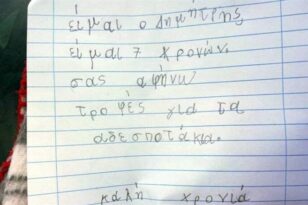 είμαι ο Δημήτρης
είμαι 7 χρονών.
σας αφήνω
τροφές για τα
αδεσποτάκια.
καλή χρονιά